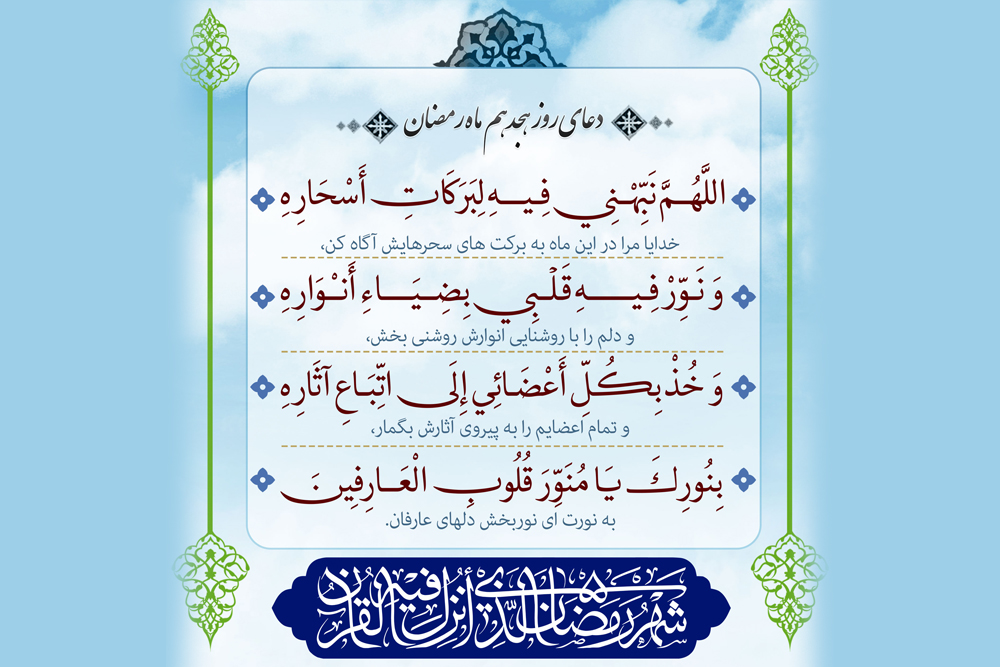 دعای روز هجدهم ماه رمضان
اللَّهُمَّ نَبِّهْنِي فِيهِ لِبَرَكَاتِ أَسْحَارِهِ
خدایا مرا در این ماه به برکت های سحرهایش آگاه کن،
وَ نَوِّرْ فِيهِ قَلْبِي بِضِيَاءِ أَنْوَارِهِ
و دلم را با روشنایی انوارش روشنی بخش،
وَ خُذْ بِكُلِّ أَعْضَائِي إِلَى اتِّبَاعِ آثَارِهِ
و تمام اعضایم را به پیروی آثارش بگمار،
بِنُورِكَ يَا مُنَوِّرَ قُلُوبِ الْعَارِفِينَ
به نورت ای نوربخش دلهای عارفان.
شَهْرُ رَمَضَانَ الَّذِي أُنْزِلَ فِيهِ الْقُرْآنُ